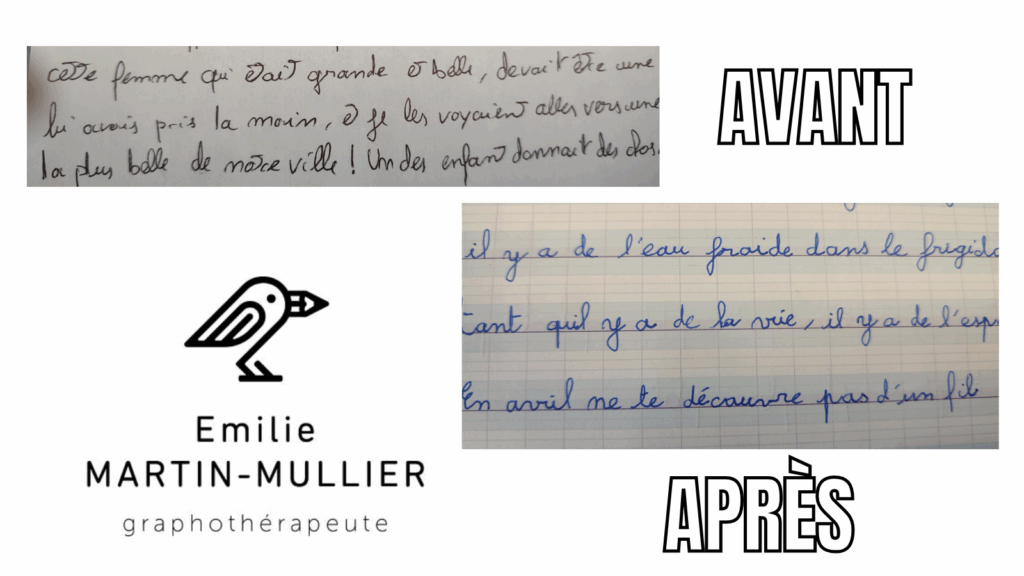 cette femme qui était grande et belle, devait être une
AVANT
lui avais pris la main, et je les voyaient aller vers une
la plus belle de notre ville ! Un des enfant donnait des
il y a de l'eau fraide dans le frigid
tant quil y a de la vie, il y a de l'esp
En avril ne te découvre pas d'un fil
Emilie
MARTIN-MULLIER
graphothérapeute
APRÈS